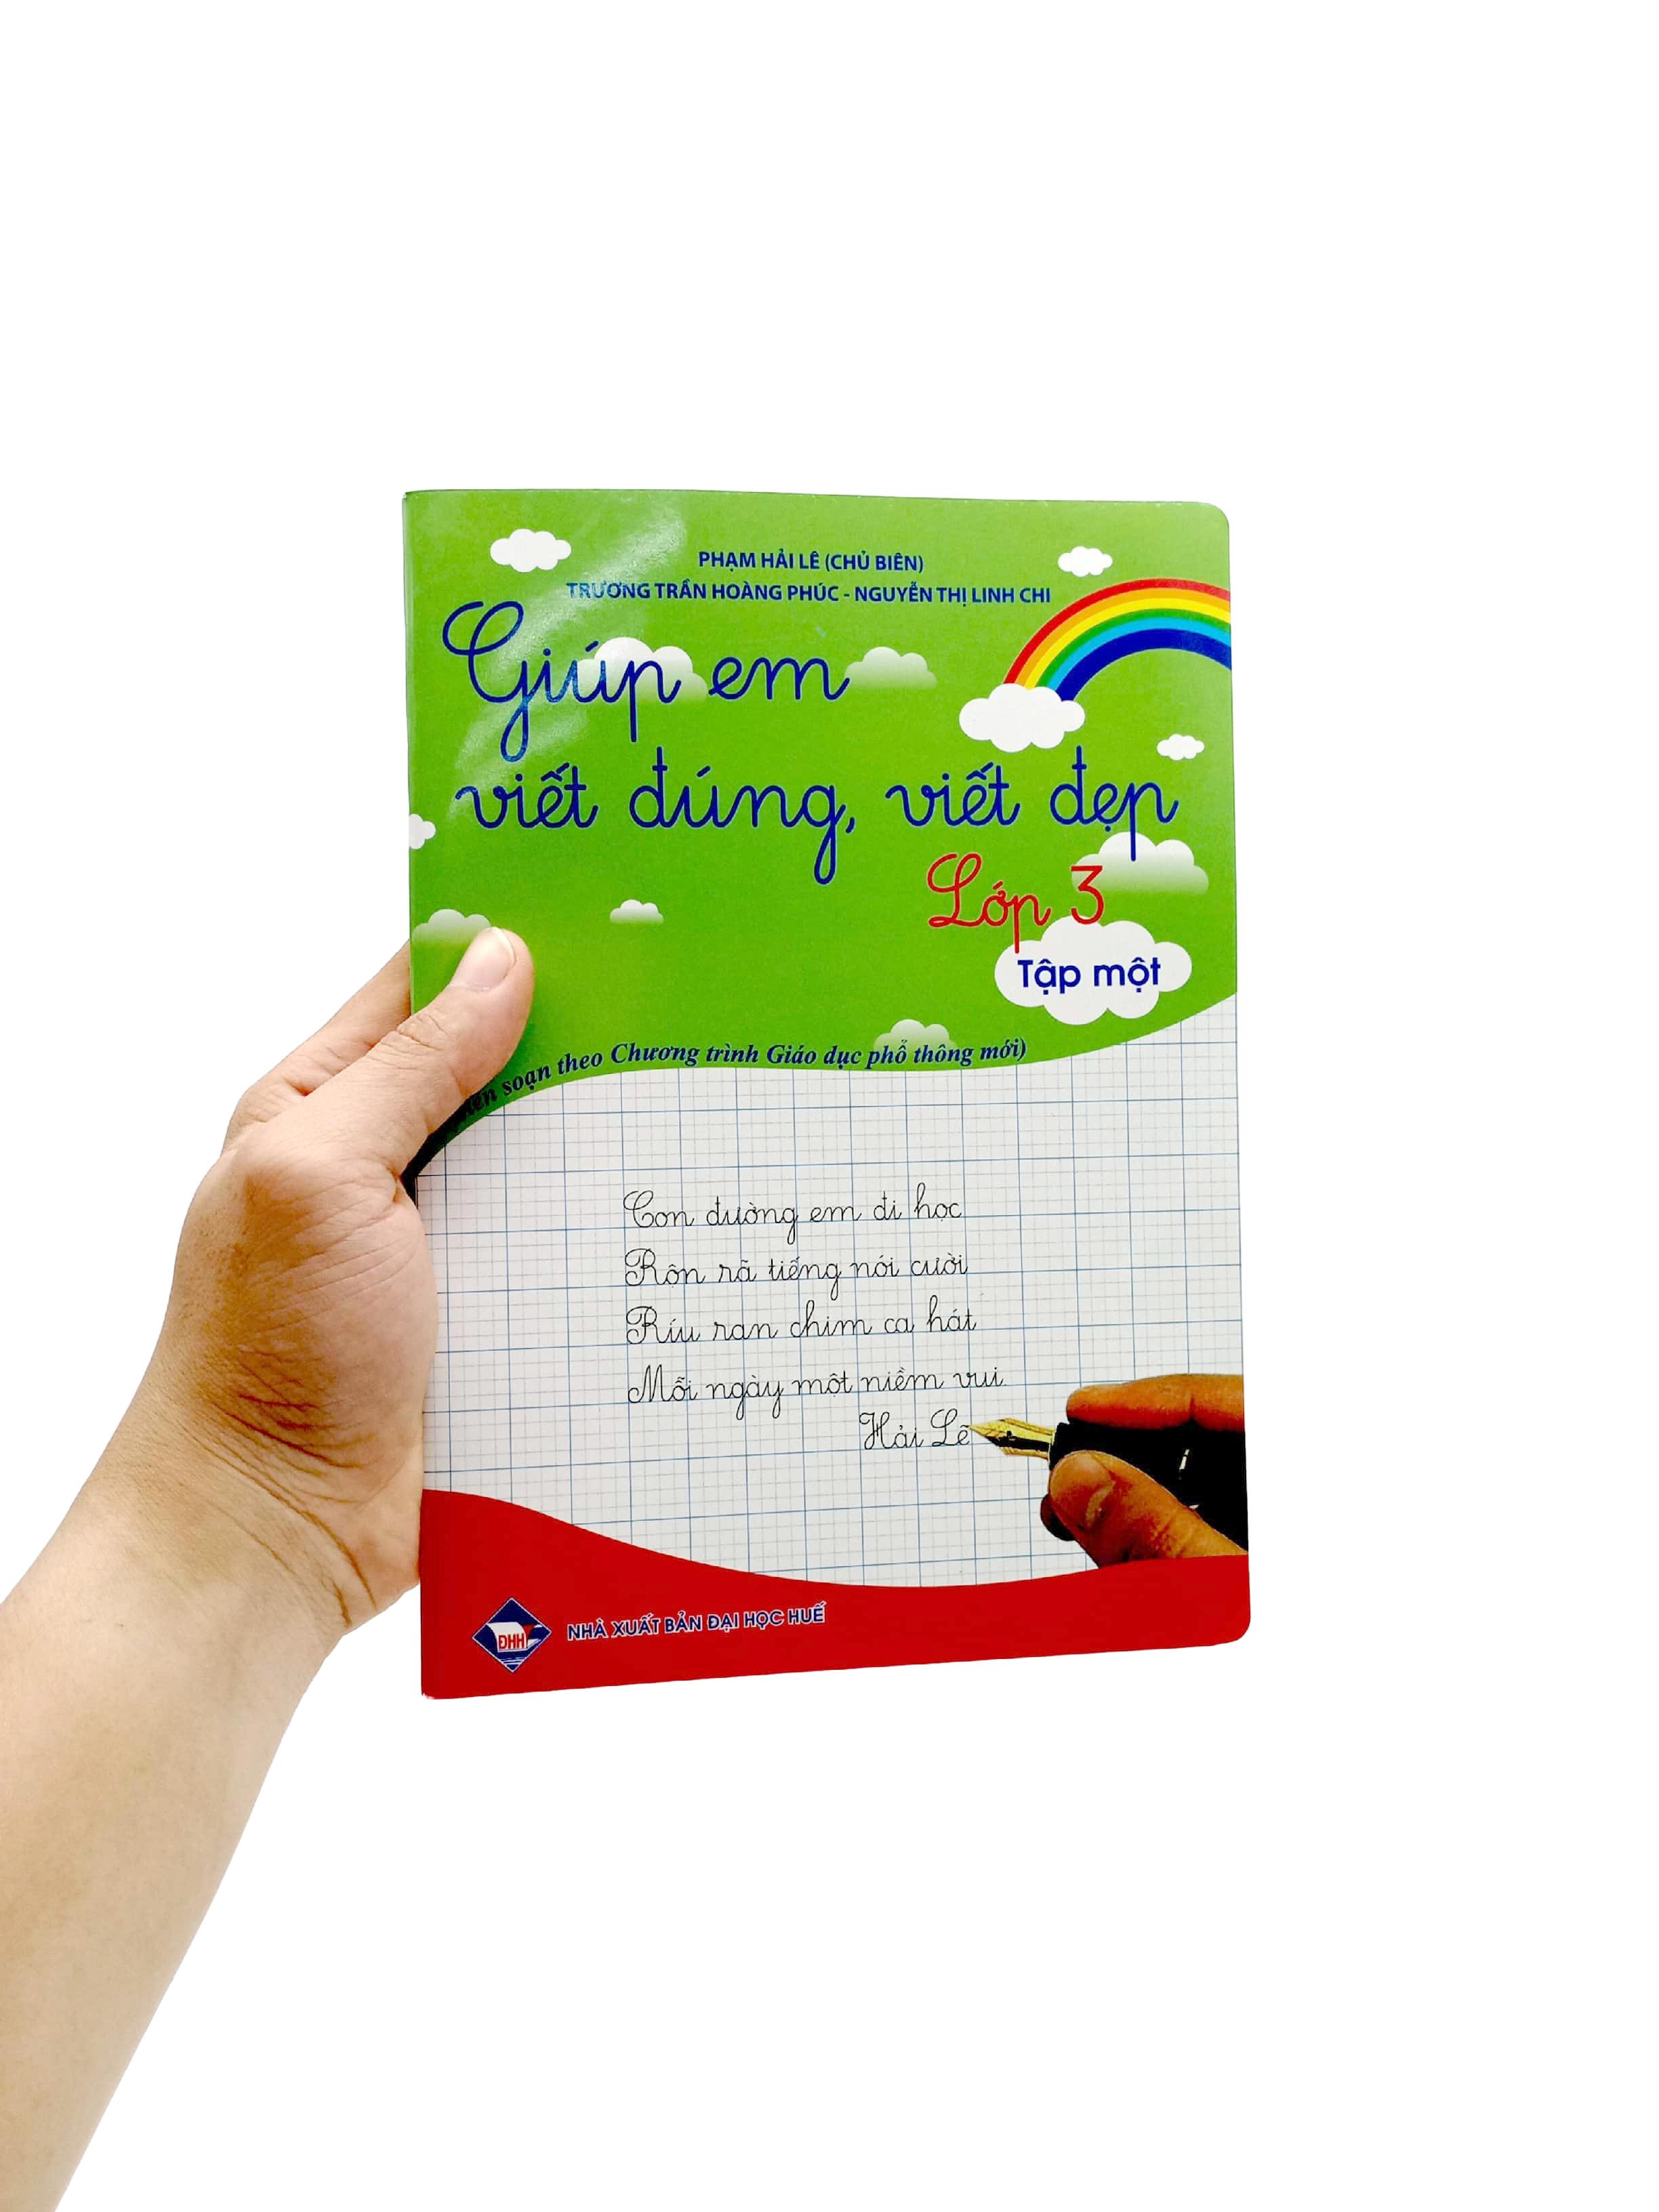 PHẠM HẢI LÊ (CHỦ BIÊN)
TRƯƠNG TRẦN HOÀNG PHÚC - NGUYỄN THỊ LINH CHI
Giúp em
viết đúng, viết đẹp
Lớp 3
Tập một
soạn theo Chương trình Giáo dục phổ thông mới)
Con đường em đi học
Rộn rã tiếng nói cười
Ríu ran chim ca hát
Mỗi ngày một niềm vui.
Hải Lê
ĐHH
NHÀ XUẤT BẢN ĐẠI HỌC HUẾ